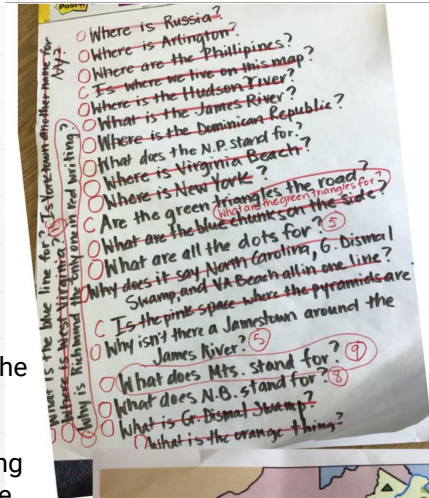 Post-it
O Where is Russia?
O Where is Arlington?
O Where are the Phillipines?
C Is where we live on this map?
O Where is the Hudson River?
O What is the James River?
O Where is the Dominican Republic?
O What does the N.P. stand for?
O Where is Virginia Beach?
O Where is New York?
C Are the green triangles the road?
What are the green triangles for?
O What are the blue chunks on the side?
O What are all the dots for? 5
O Why does it say North Carolina, G. Dismal
Swamp, and VA Beach all in one line?
C Is the pink space where the pyramids are
O Why isn't there a Jamestown around the
James River? 5
O What does Mts. stand for? 9
O What does N.B. stand for? 8
O What is Gr. Dismal Swamp?
O What is the orange thing?
O What is the blue line for? Is Yorktown another name for
Ny?
O Where is West Virginia?
O Why is Richmond the only one in red writing?
he
ng
e